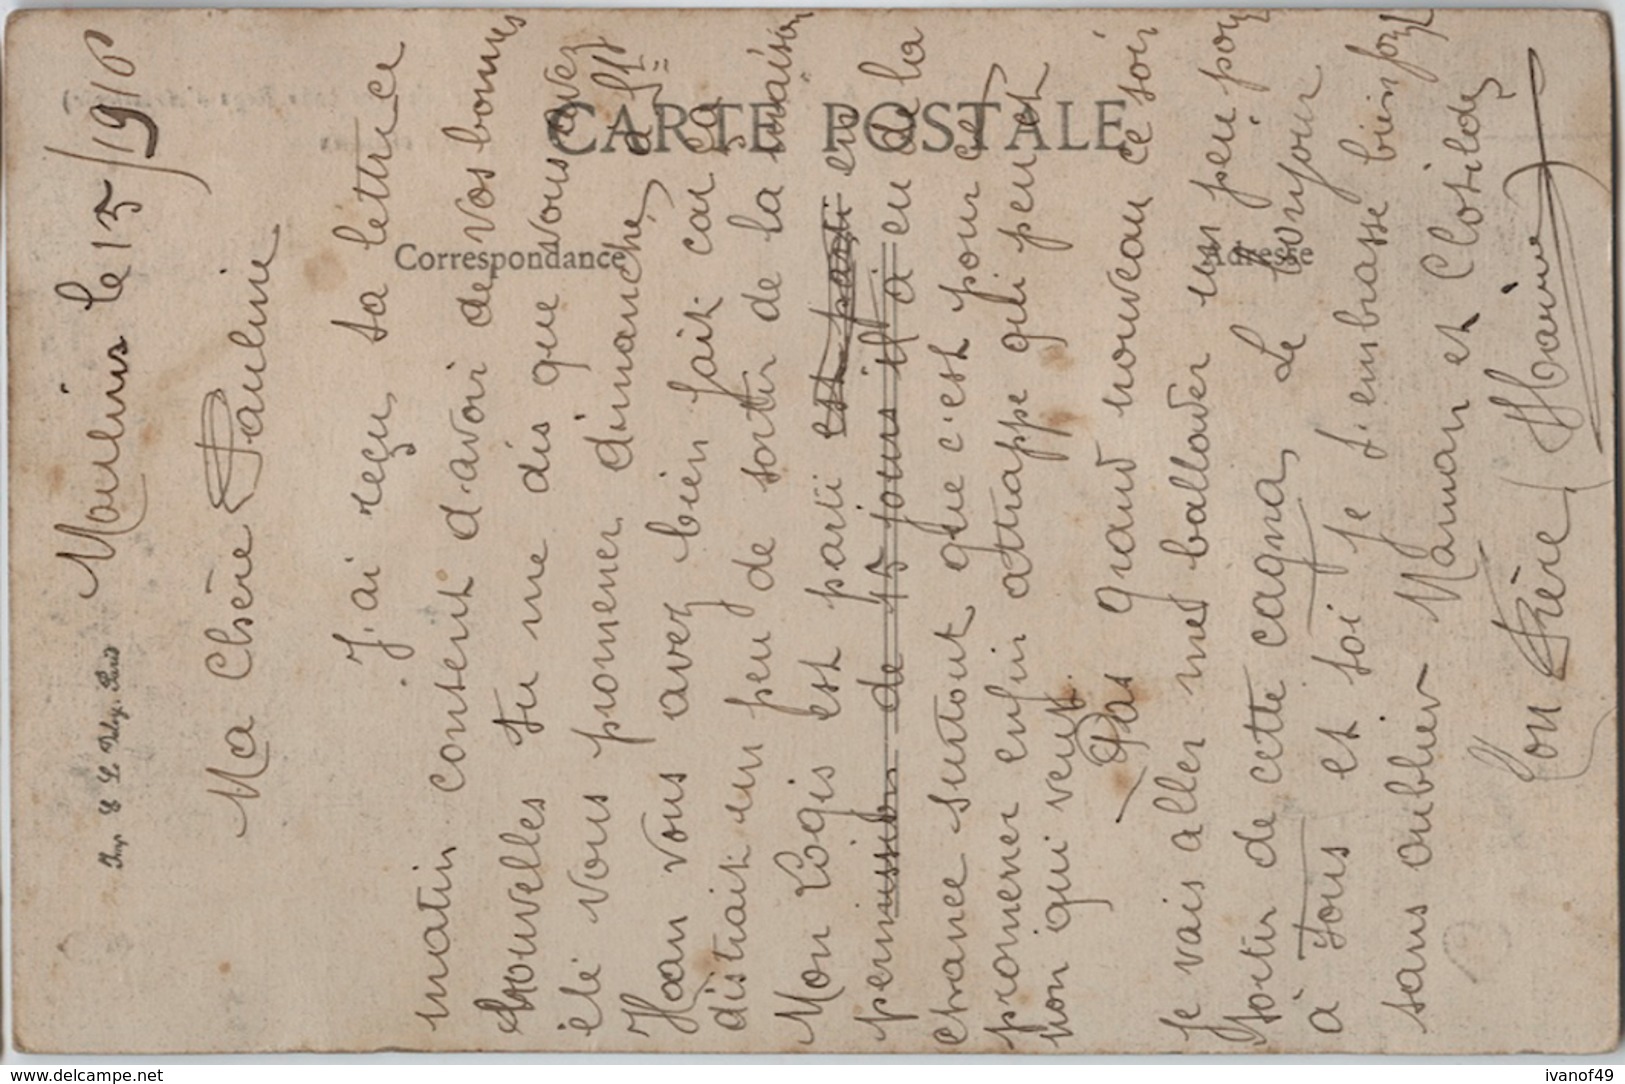 Moulins le 15/1916
Ma Chère Pauline
J'ai reçu ta lettre ce
matin content d'avoir de vos bonnes
nouvelles tu me dis que vous avez
été vous promener dimanche, à
vous avez bien fait car ça
distrait un peu de sortir de la maison
Mon Logis est parti est parti en
permission de 15 jours il a eu de la
chance surtout que c'est pour se
promener enfin attrappe qui peut et
non qui veut.
Pas grand nouveau ce soir
je vais aller me ballader un peu pour
sortir de cette cagna, Le bonjour
à tous et toi je t'embrasse bien fort
sans oublier Maman et Clotilde
Ton Frère,
CARTE POSTALE
Correspondance
Adresse
Imp. Paris
www.delcampe.net
ivanof49